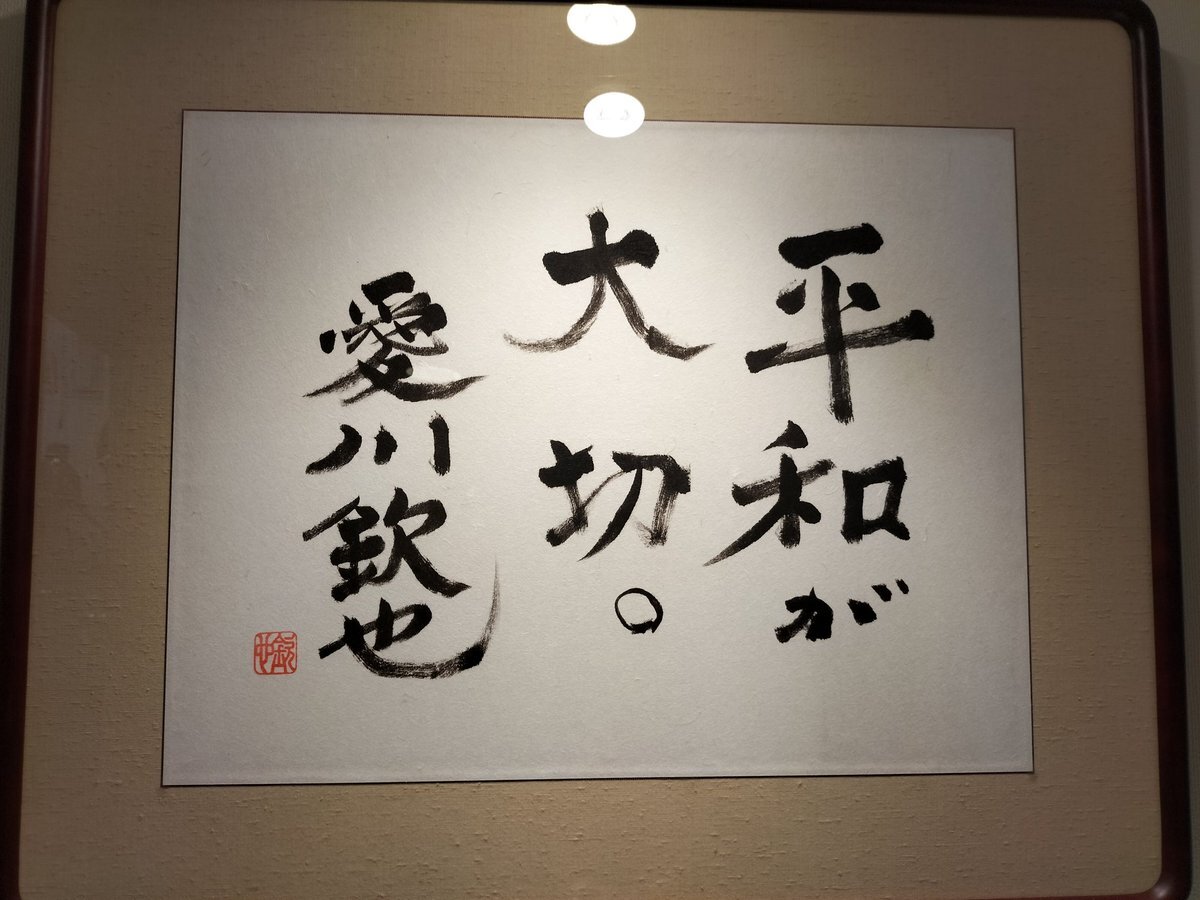 平和が
大切。
愛川欽也
欽也